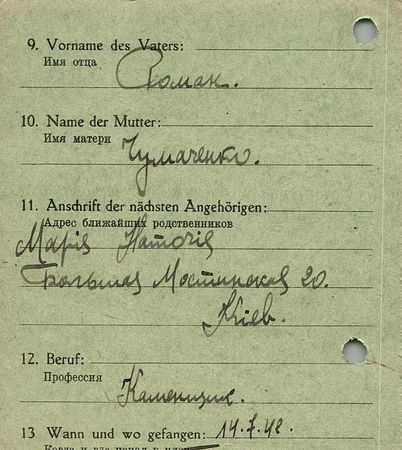 9. Vorname des Vaters:
Имя отца
Роман.
10. Name der Mutter:
Имя матери
Чумаченко.
11. Anschrift der nächsten Angehörigen:
Адрес ближайших родственников
Марія
Большая 20.
Кіев.
12. Beruf:
Профессия
Каменщик.
13 Wann und wo gefangen: 14.7.42.
Когда и где попал в плен